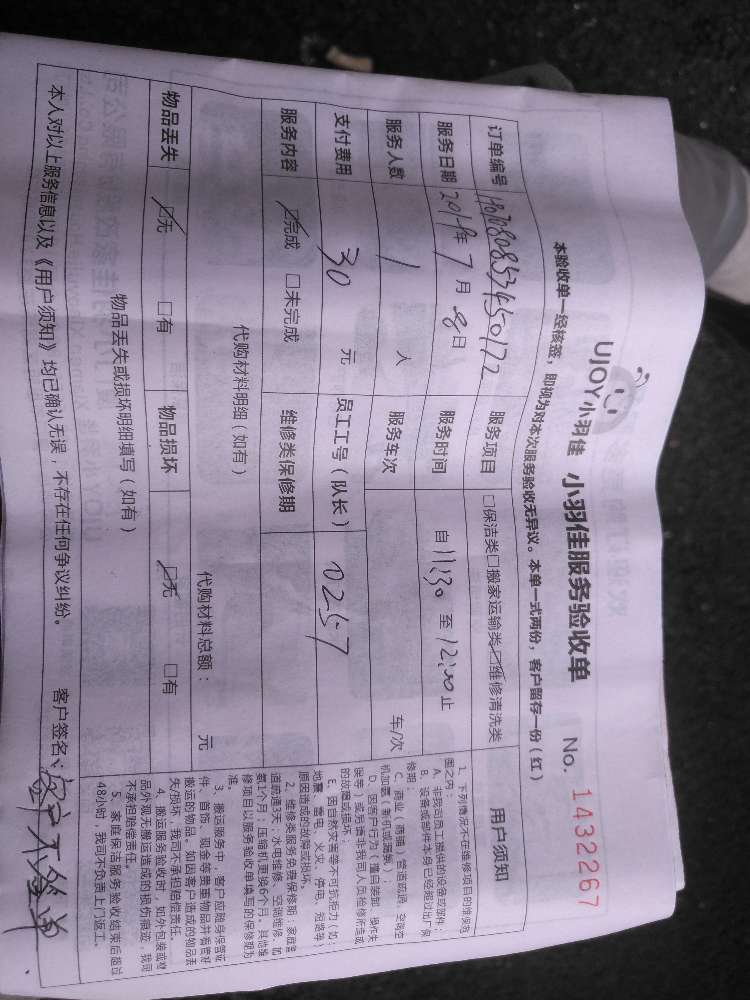 UJOY小羽佳 小羽佳服务验收单 No. 1432267
本验收单一经核签，即视为对本次服务验收无异议。本单一式两份，客户留存一份（红）
订单编号 服务项目 □保洁类□搬家运输类☑维修清洗类
服务日期 2019年7月8日 服务时间 自11:30至12:00止
服务人数 1人 服务车次 车/次
支付费用 30元 员工工号（队长） 0257
服务内容 ☑完成 □未完成 维修类保修期
代购材料明细（如有） 代购材料总额： 元
物品丢失 ☑无 □有 物品损坏 ☑无 □有
物品丢失或损坏明细填写（如有）
本人对以上服务信息以及《用户须知》均已确认无误，不存在任何争议纠纷。 客户签名：客户不签单
用户须知
1、下列情况不在维修项目的维保范
围之内：
A、非我司员工提供的设备或部件；
B、设备或部件本身已经超过出厂保
修期；
C、商业（商铺）管道疏通、空调空
机加氨（制机或漏氨）；
D、因客户行为（擅自装卸、操作失
误等）或另请非我司人员检修所造成
的故障或损坏；
E、因自然灾害等不可抗拒力（如：
地震、雷电、火灾、停电、泡城等
原因造成的故障或损坏。
2、维修类服务免费保修期：家庭管
道疏通3天；水电维修、空调维修、加
氨1个月；压缩机更换6个月。其他维
修项目以服务验收单填写的保修期为
准。
3、搬运服务中，客户应随身保管证
件、首饰、现金等贵重物品并看管好
搬运的物品。如因客户造成的物品丢
失/损坏，我司不承担赔偿责任。
4、搬运服务验收时，如外包装或物
品外观无搬运造成的损伤痕迹，我司
不承担赔偿责任。
5、家庭保洁服务验收结束后超过
48小时，我司不负责上门返工。